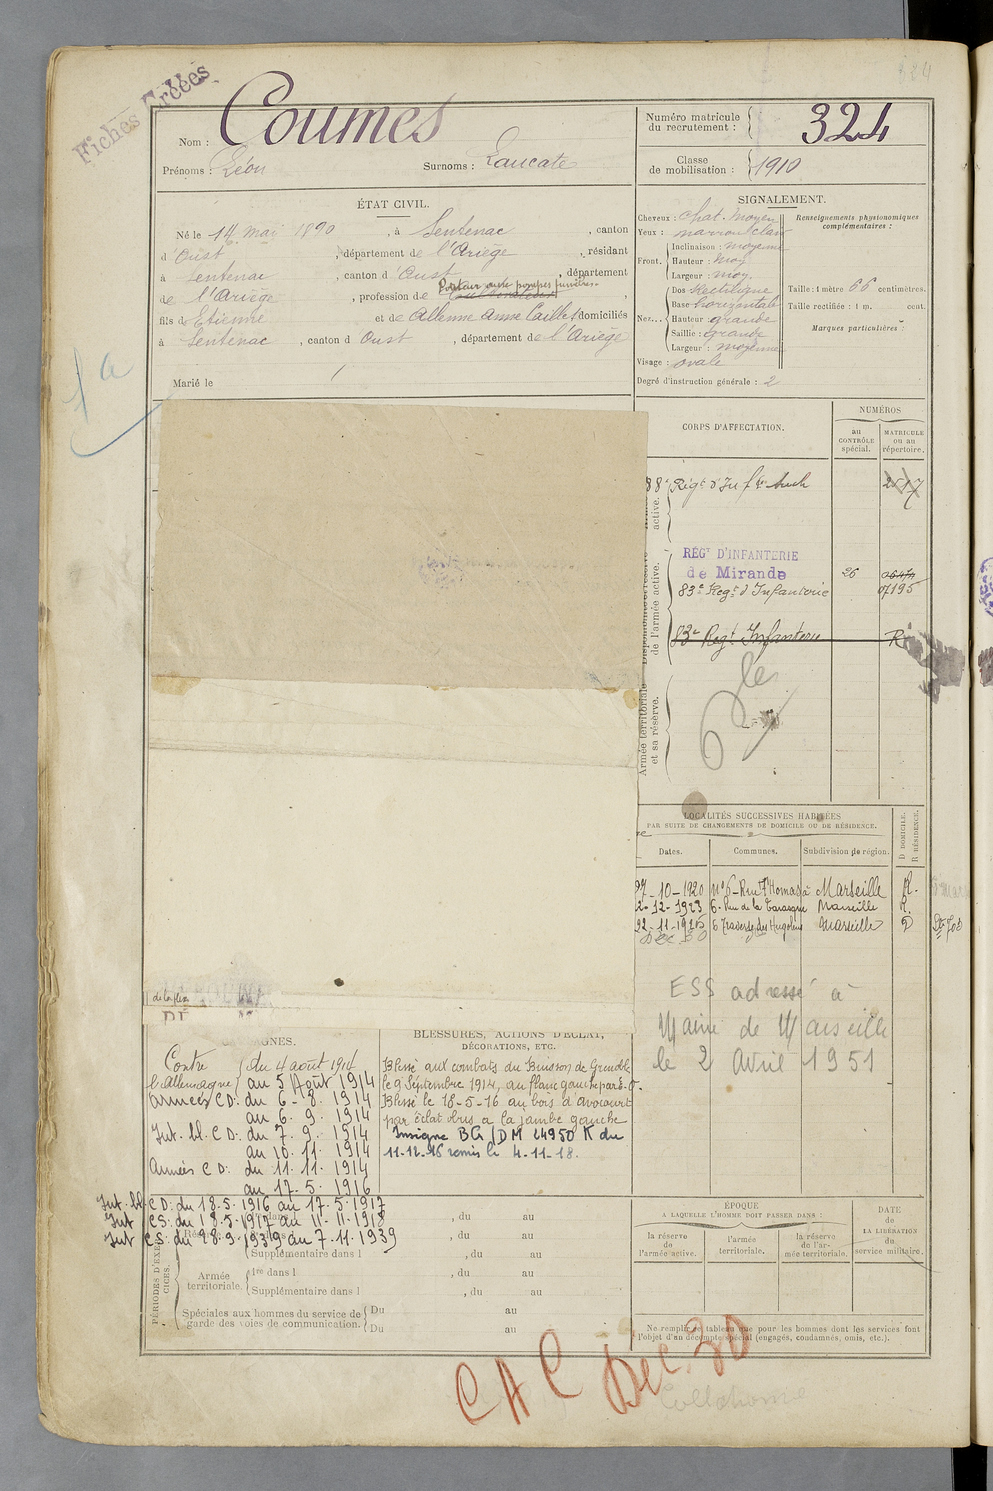 Fiches Créées
324
Nom : Coumes
Prénoms : Léon Surnoms : Laucate
Numéro matricule du recrutement : 324
Classe de mobilisation : 1910
ÉTAT CIVIL.
Né le 14 mai 1890, à Sentenac, canton
d'Oust, département de l'Ariège, résidant
à Sentenac, canton d'Oust, département
Porteur aux pompes funèbres
de l'Ariège, profession de
fils de Etienne et de Allenne Anne Cailles domiciliés
à Sentenac, canton d Oust, département de l'Ariège
Marié le
SIGNALEMENT.
Cheveux : chat. moyen
Yeux : marron clair
Front. Inclinaison : moyenne
Hauteur : moy
Largeur : moy.
Nez... Dos Rectiligne
Base horizontale
Hauteur grande
Saillie : grande
Largeur : moyenne
Visage : ovale
Degré d'instruction générale : 2
Renseignements physionomiques complémentaires :
Taille : 1 mètre 66 centimètres.
Taille rectifiée : 1 m. cent.
Marques particulières :
CORPS D'AFFECTATION.
NUMÉROS
au CONTRÔLE spécial.
MATRICULE ou au répertoire.
active.
88e Régt d'Inf ie Auch 2517
de l'armée active.
RÉGT D'INFANTERIE
de Mirande 26
83e Régt d'Infanterie 07195
83e Régt Infanterie R
Armée territoriale et sa réserve.
LOCALITÉS SUCCESSIVES HABITÉES
PAR SUITE DE CHANGEMENTS DE DOMICILE OU DE RÉSIDENCE.
Dates. Communes. Subdivision de région. D DOMICILE. R RÉSIDENCE.
27-10-1920 N°6-Rue Thomas à Marseille R.
2-12-1923 6-Rue de la Tarasque Marseille R.
22-11-1925 6 Traverse des Hugolins Marseille D
ESS adressé à
Maine de Marseille
le 2 Avril 1951
GNES.
Contre l'Allemagne du 4 août 1914
au 5 Août 1914
Armées CD: du 6-8-1914
au 6.9.1914
Int. bl. CD: du 7.9.1914
au 10.11.1914
Armées CD: du 11.11.1914
au 17-5-1916
Int. bl. CD: du 18-5-1916 au 17-5-1917
Int CS: du 18-5-1917 au 11-11-1918
Int CS. du 28.9.1939 au 7.11.1939
BLESSURES, ACTIONS D'ÉCLAT,
DÉCORATIONS, ETC.
Blessé aux combats du Buisson de
le 9 Septembre 1914, au flanc gauche par é.o.
Blessé le 18-5-16 au bois d'avocourt
par éclat obus à la jambe gauche
Insigne BG/DM 24950 K du
11-12-16 remis le 4-11-18.
PÉRIODES D'EXERCICES.
, du au
, du au
Supplémentaire dans l , du au
Armée territoriale. 1re dans l , du au
Supplémentaire dans l , du au
Spéciales aux hommes du service de garde des voies de communication. Du au
Du au
ÉPOQUE
A LAQUELLE L'HOMME DOIT PASSER DANS :
la réserve de l'armée active.
l'armée territoriale.
la réserve de l'armée territoriale.
DATE de LA LIBÉRATION du service militaire.
Ne remplir ce tableau que pour les hommes dont les services font
l'objet d'un décompte spécial (engagés, condamnés, omis, etc.).
CAC Dec. 30